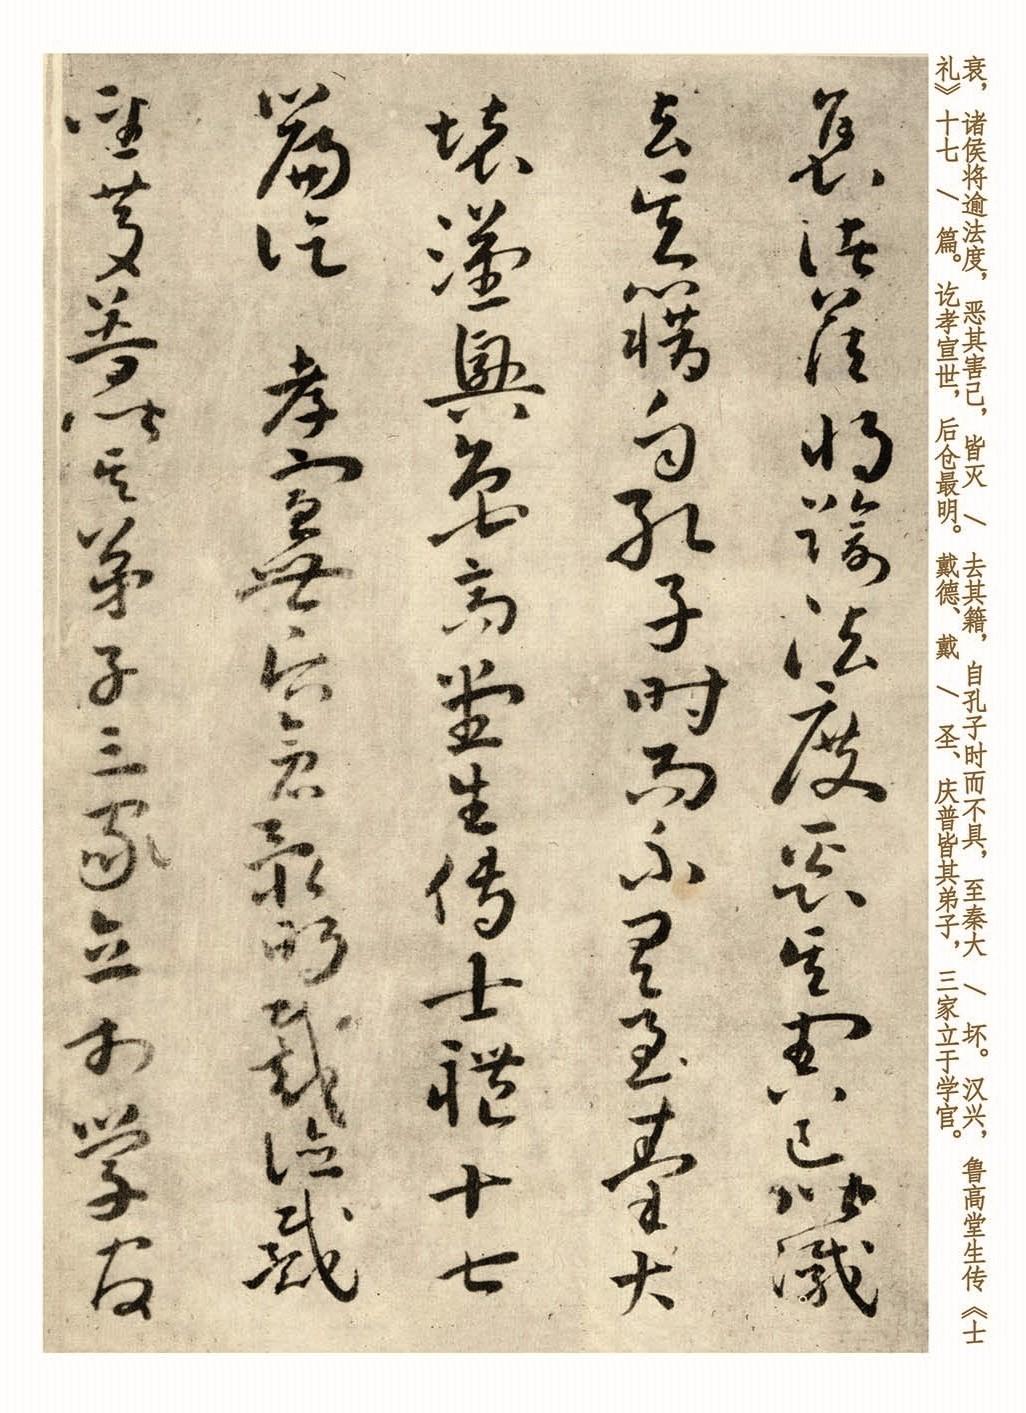 衰诸侯将踰法度恶其害己皆滅
去其籍自孔子时而不具至秦大
壊漢興魯高堂生传士礼十七
篇讫孝宣世后倉最明戴德戴
聖慶普皆其弟子三家立於学官
衰，诸侯将逾法度，恶其害己，皆灭 / 去其籍，自孔子时而不具，至秦大 / 坏。汉兴，鲁高堂生传《士
礼》十七 / 篇。讫孝宣世，后仓最明。戴德、戴 / 圣、庆普皆其弟子，三家立于学官。